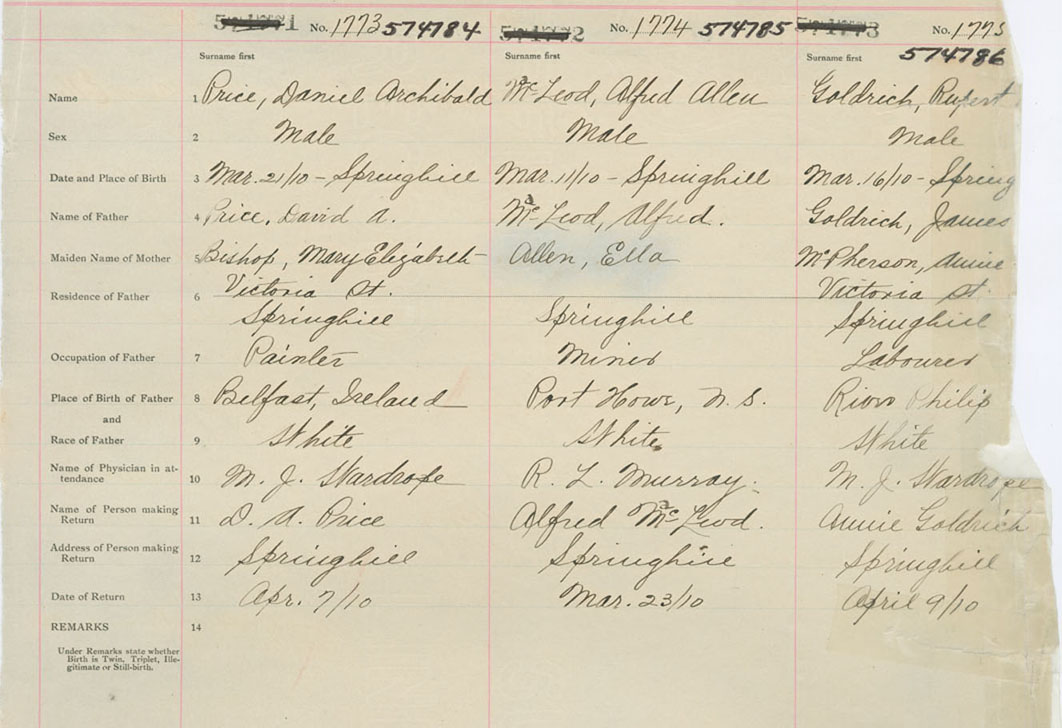 No. 1773 574784 No. 1774 574785 No. 1775
Surname first Surname first Surname first 574786
Name 1 Price, Daniel Archibald McLeod, Alfred Allen Goldrich, Rupert
Sex 2 Male Male Male
Date and Place of Birth 3 Mar. 21/10 - Springhill Mar. 11/10 - Springhill Mar. 16/10 - Spring
Name of Father 4 Price, David A. McLeod, Alfred. Goldrich, James
Maiden Name of Mother 5 Bishop, Mary Elizabeth Allen, Ella McPherson, Annie
Residence of Father 6 Victoria St. Victoria St.
Springhill Springhill Springhill
Occupation of Father 7 Painter Miner Labourer
Place of Birth of Father 8 Belfast, Ireland Port Howe, N.S. River Philip
and
Race of Father 9 White White White
Name of Physician in at-
tendance 10 M. J. Wardrope R. L. Murray. M. J. Wardrope
Name of Person making
Return 11 D. A. Price Alfred McLeod. Annie Goldrich
Address of Person making
Return 12 Springhill Springhill Springhill
Date of Return 13 Apr. 7/10 Mar. 23/10 April 9/10
REMARKS 14
Under Remarks state whether
Birth is Twin, Triplet, Ille-
gitimate or Still-birth.